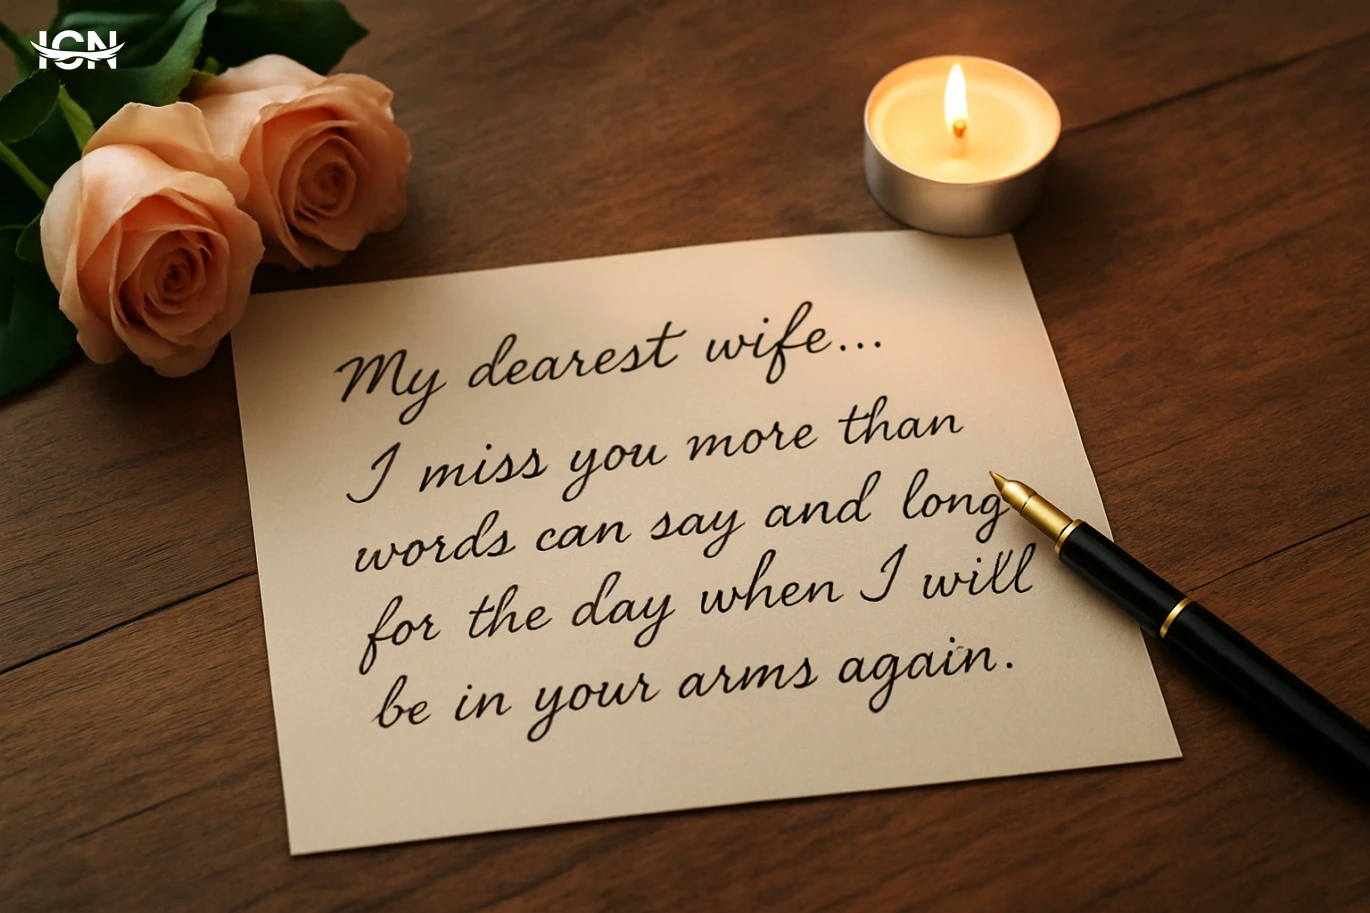 ICN
My dearest wife...
I miss you more than
words can say and long
for the day when I will
be in your arms again.